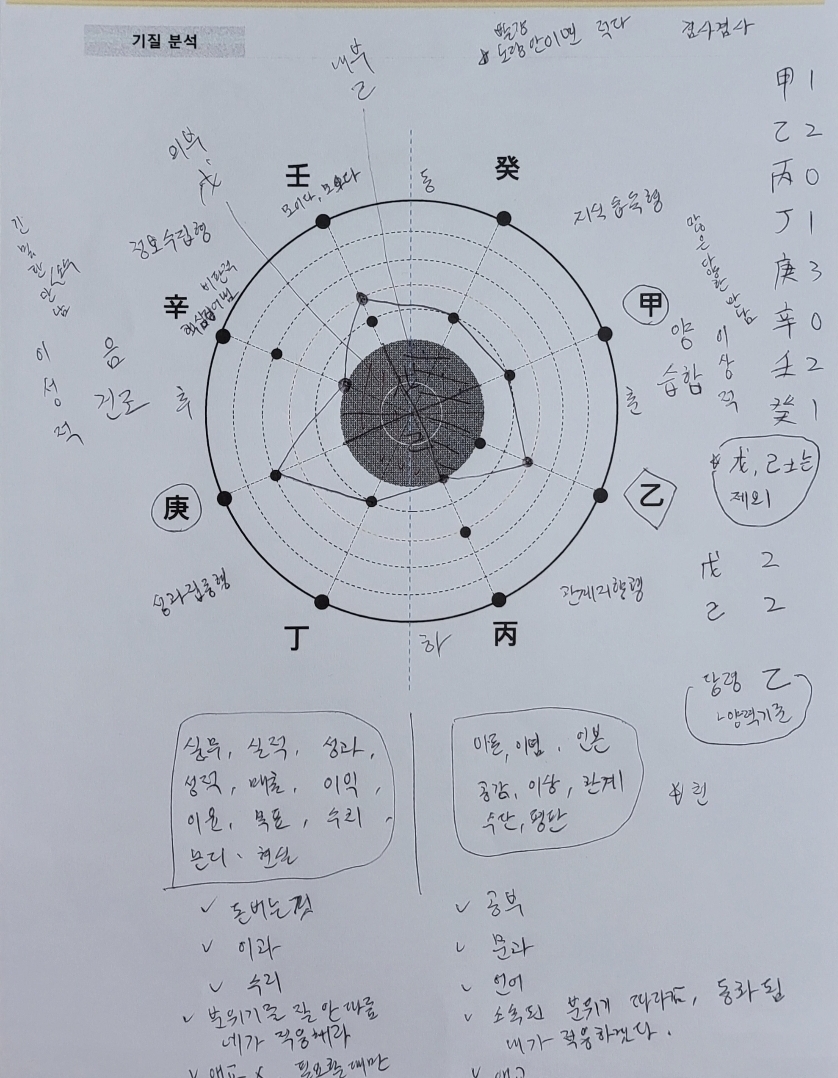 기질 분석
빨강
노랑 안이면 적다
검사검사
내부
己
외부
戊
壬
모이다, 모으다
동
癸
지식습득형
정보수집형
비판적
辛
핵심잡기념
이성적
음
건조
추
甲
양
습합
이상적
춘
庚
乙
성과집중형
관계지향형
丁
하
丙
甲 1
乙 2
丙 0
丁 1
庚 3
辛 0
壬 2
癸 1
戊, 己土는
제외
戊 2
己 2
당령 乙
양력기준
실무, 실적, 성과,
성적, 매출, 이익,
이윤, 목표, 수리,
현실
이론, 이념, 인본
공감, 이상, 관계
수단, 평판
✓ 돈버는것
✓ 이과
✓ 수리
✓ 분위기를 잘 안따름
네가 적응해라
✓ 애교 × 필요할때만
✓ 공부
✓ 문과
✓ 언어
✓ 소속된 분위기 따라감, 동화됨
내가 적응하겠다.
✓ 애교